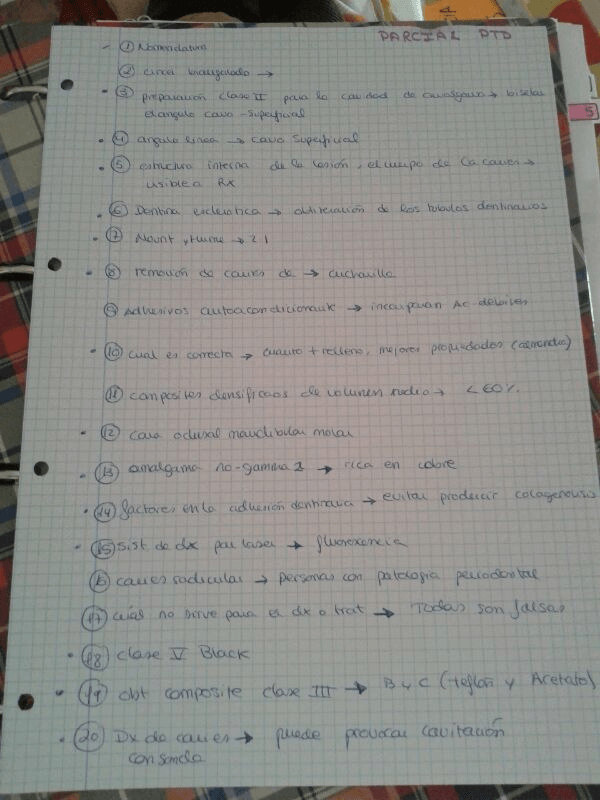 PARCIAL PTD
① Nomenclatura
② cincel biangulado →
③ preparación clase II para la cavidad de amalgama → biselar
el angulo cavo-superficial
④ angulo linea → cavo superficial
⑤ estructura interna de la lesión, el cuerpo de la caries →
visible a Rx
⑥ Dentina esclerotica → obliteración de los tubulos dentinarios
⑦ Mount y Hume → 2.1
⑧ remoción de caries de → cucharilla
⑨ Adhesivos autoacondicionante → incorporan Ac. debiles
⑩ cual es correcta → cuanto + relleno, mejores propiedades
⑪ composites densificados de volumen medio → < 60%
⑫ cara oclusal mandibular molar
⑬ amalgama no-gamma 2 → rica en cobre
⑭ factores en la adhesión dentinaria → evitar producir
⑮ sist de dx por laser → fluorexencia
⑯ caries radicular → personas con patologia periodontal
⑰ cuál no sirve para el dx o trat → Todas son falsas
⑱ clase V Black
⑲ obt composite clase III → B y C (teflon y Acetato)
⑳ Dx de caries → puede provocar cavitación
con sonda
5